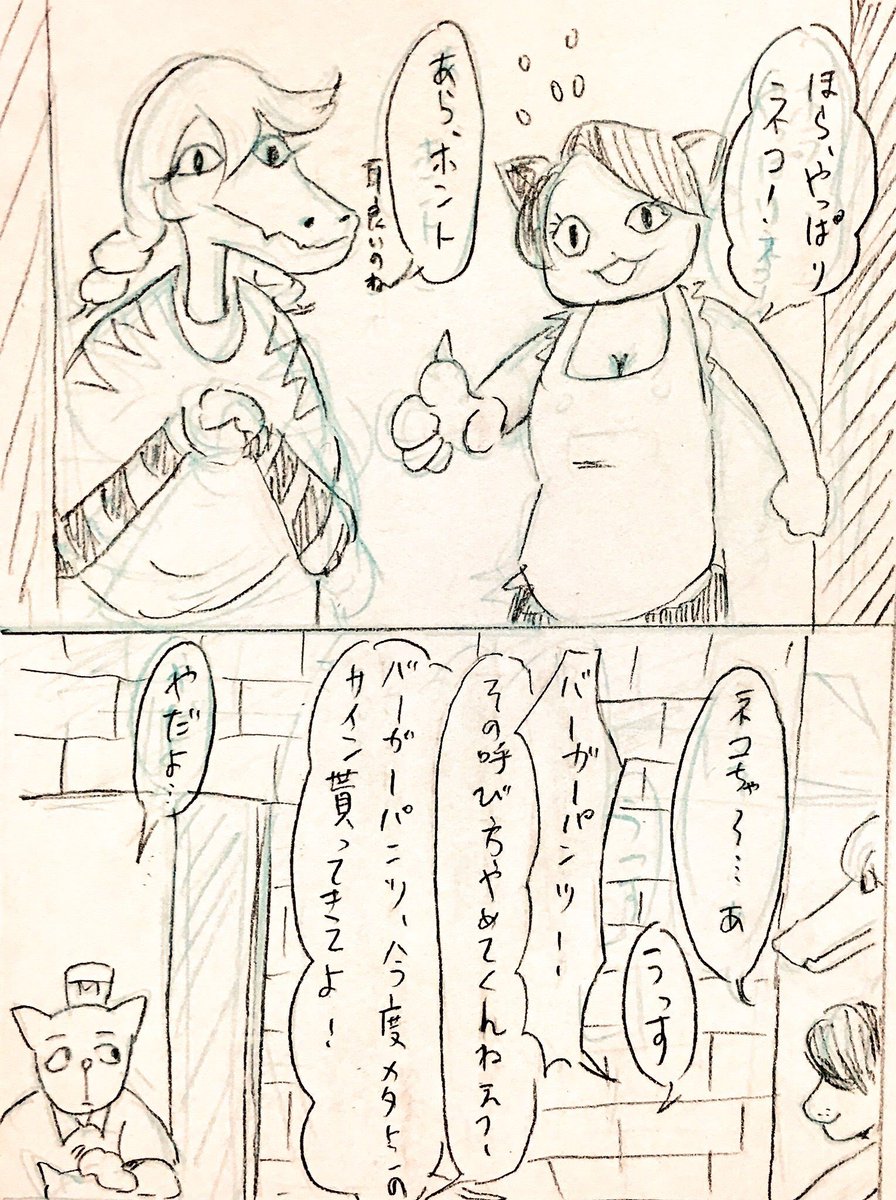 ほら、やっぱり
ネコ!
あら、ホント
耳良いのね
ネコちゃん…あ
うっす
バーガーパンツー
その呼び方やめてくんねえ?
バーガーパンツ、今度メタトンの
サイン貰ってきてよ!
やだよ…
M